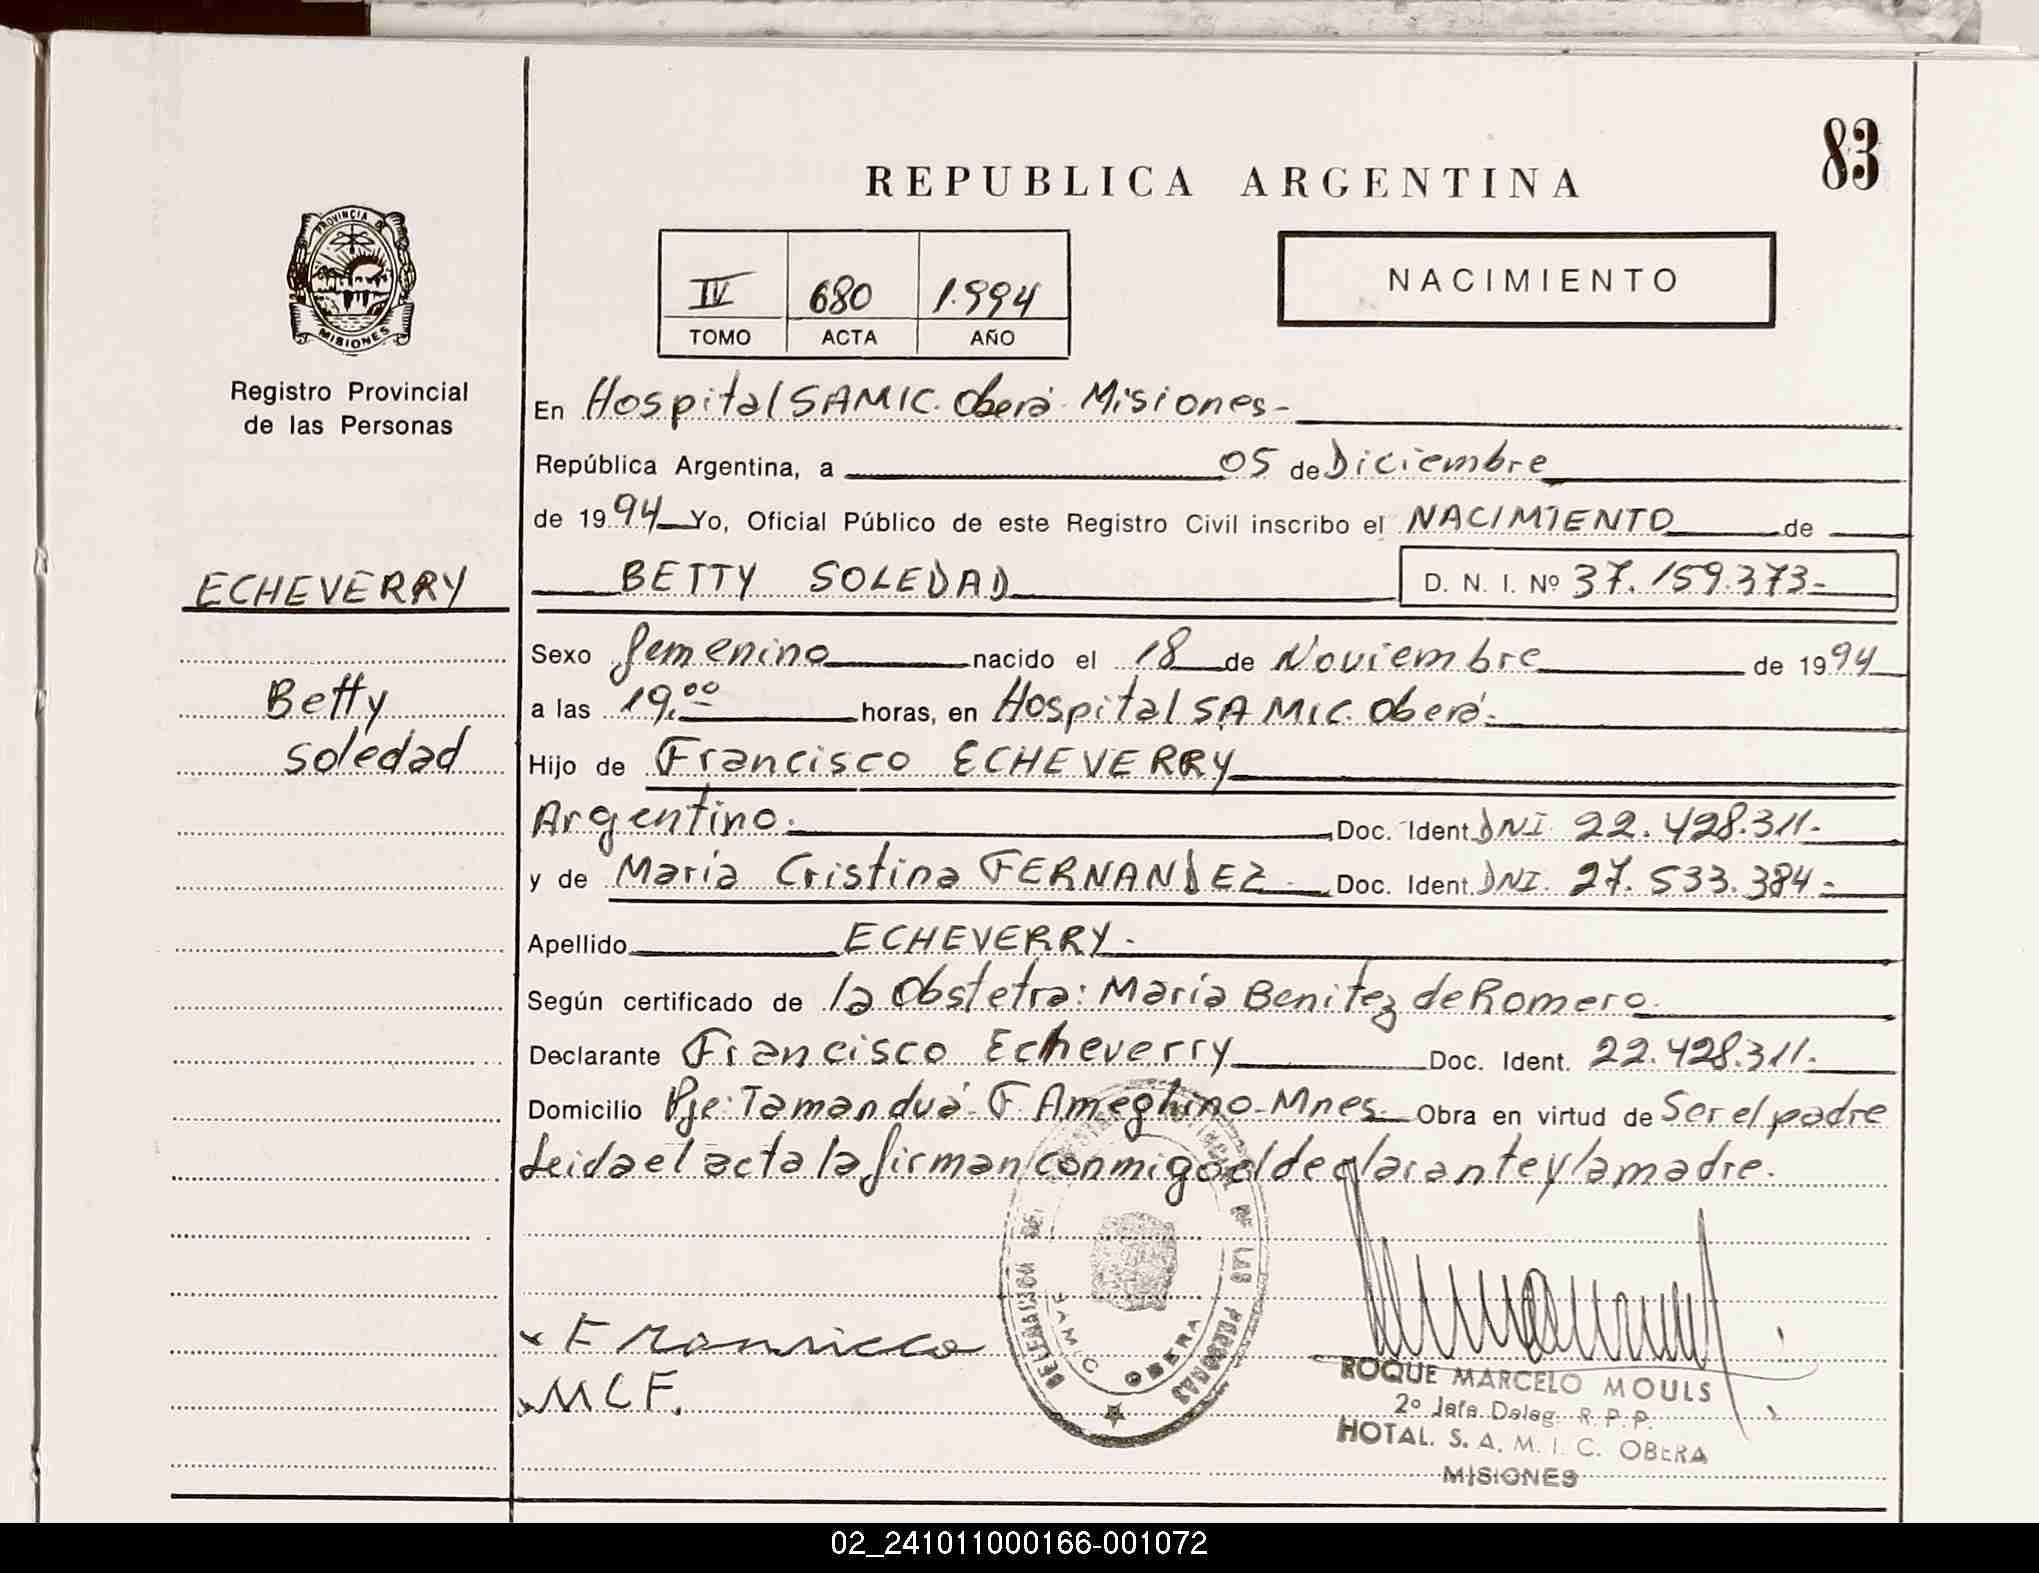 83
REPUBLICA ARGENTINA
PROVINCIA DE
MISIONES
Registro Provincial
de las Personas
IV 680 1.994
TOMO ACTA AÑO
NACIMIENTO
En Hospital SAMIC. Oberá Misiones-
República Argentina, a 05 de Diciembre
de 1994 Yo, Oficial Público de este Registro Civil inscribo el NACIMIENTO de
ECHEVERRY
BETTY SOLEDAD D. N. I. Nº 37.159.373-
Sexo femenino nacido el 18 de Noviembre de 1994
Betty
a las 19,00 horas, en Hospital SAMIC. Oberá.
Soledad
Hijo de Francisco ECHEVERRY
Argentino. Doc. Ident. DNI 22.428.311.
y de María Cristina FERNANDEZ. Doc. Ident. DNI. 27.533.384-
Apellido ECHEVERRY.
Según certificado de la Obstetra: María Benitez de Romero.
Declarante Francisco Echeverry Doc. Ident. 22.428.311.
Domicilio Pje: Tamanduá F. Ameghino-Mnes Obra en virtud de Ser el padre
Leida el acta la firman conmigo el declarante y la madre.
DE LAS PERSONAS
SAMIC OBERA
M C F.
ROQUE MARCELO MOULS
2º Jefe Deleg. R.P.P.
HOTAL. S. A. M. I. C. OBERA
MISIONES
02_241011000166-001072